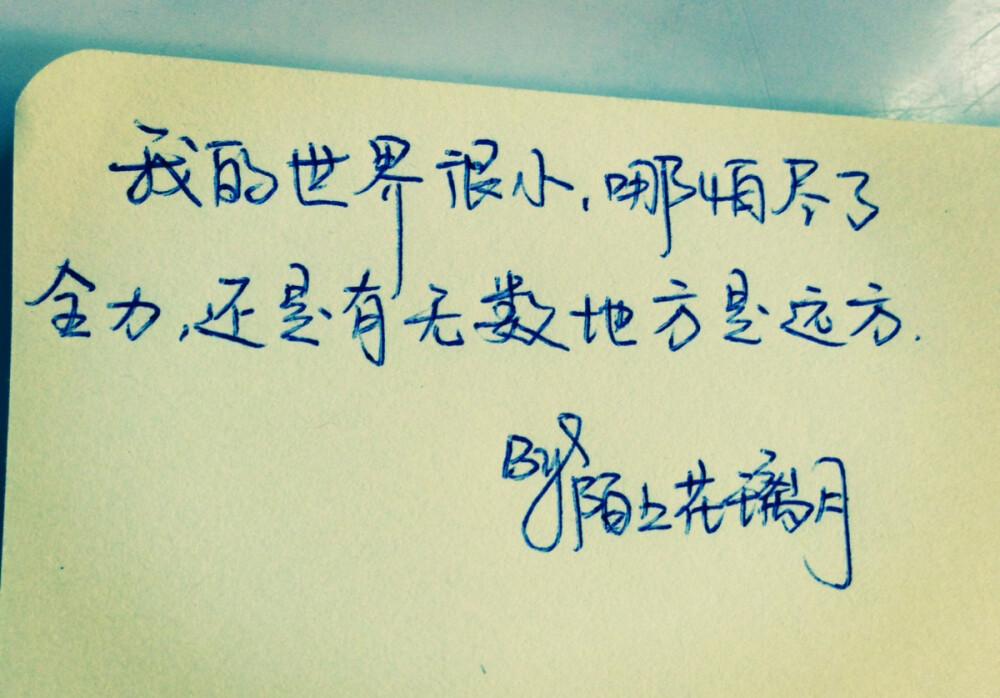 我的世界很小,哪怕尽了
全力,还是有无数地方是远方.
By 陌上花璃月